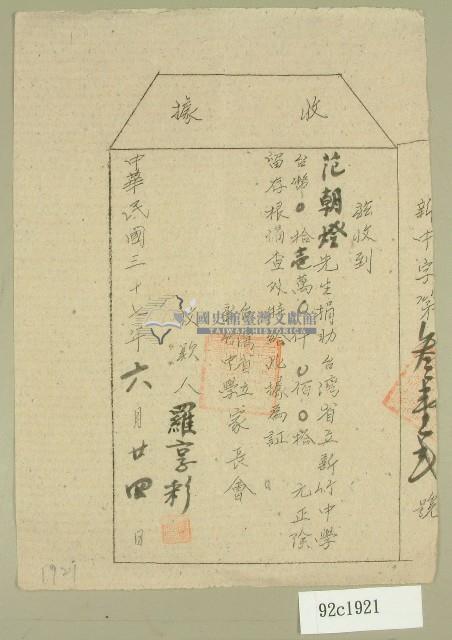 收據
茲收到
范朝燈先生捐助台灣省立新竹中學
台幣0拾壹萬0仟0佰0拾元正除
留存根備查外特給此據為証
台灣省立
新竹中學家長會
收款人羅享彩
中華民國三十七年六月廿四日
新中字第叁壹弍號
國史館臺灣文獻館
TAIWAN HISTORICA
1921
92c1921